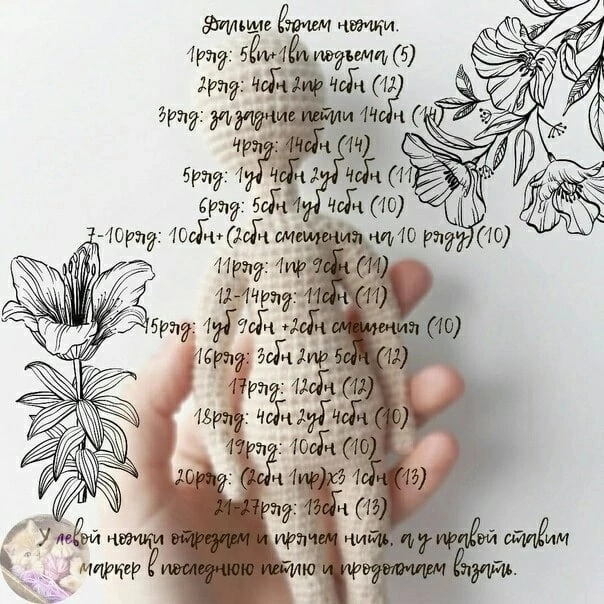 Дальше вяжем ножки.
1ряд: 5вп+1вп подъема (5)
2ряд: 4сбн 2пр 4сбн (12)
3ряд: за задние петли 14сбн (14)
4ряд: 14сбн (14)
5ряд: 1уб 4сбн 2уб 4сбн (11)
6ряд: 5сбн 1уб 4сбн (10)
7-10ряд: 10сбн+(2сбн смещения на 10 ряду)(10)
11ряд: 1пр 9сбн (11)
12-14ряд: 11сбн (11)
15ряд: 1уб 9сбн +2сбн смещения (10)
16ряд: 3сбн 2пр 5сбн (12)
17ряд: 12сбн (12)
18ряд: 4сбн 2уб 4сбн (10)
19ряд: 10сбн (10)
20ряд: (2сбн 1пр)х3 1сбн (13)
21-27ряд: 13сбн (13)
У левой ножки отрезаем и прячем нить, а у правой ставим
маркер в последнюю петлю и продолжаем вязать.